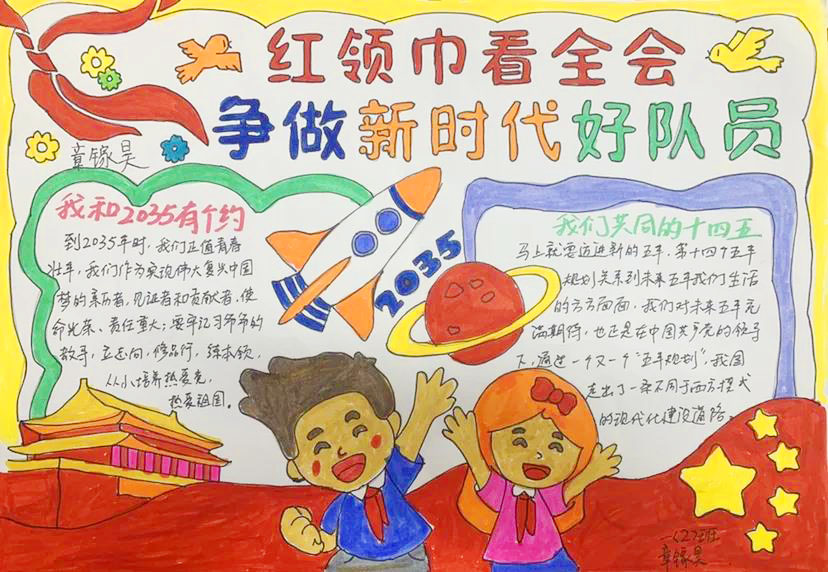 红领巾看全会
争做新时代好队员
章镓昊
我和2035有个约
到2035年时，我们正值青春
壮年，我们作为实现伟大复兴中国
梦的亲历者、见证者和贡献者，使
命光荣、责任重大；要牢记习爷爷的
教导，立志向，修品行，练本领，
从小培养热爱党，
热爱祖国。
2035
我们共同的十四五
马上就要迈进新的五年，第十四个五年
规划关系到未来五年我们生活
的方方面面，我们对未来五年充
满期待，也正是在中国共产党的领导
下，通过一个又一个“五年规划”，我国
走出了一条不同于西方模式
的现代化建设道路。
一（2）班
章镓昊